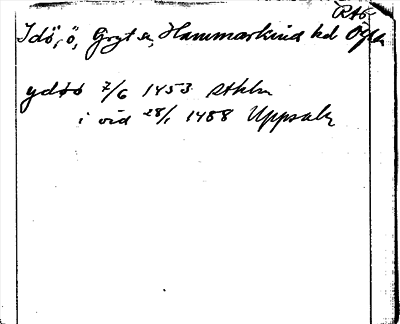 RAö
Idö, ö, Gryt sn, Hammarkind hd Ögtl
ydöö 7/6 1453 Sthlm
i vid 28/1 1488 Uppsala